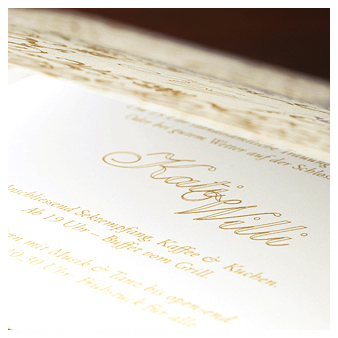 Trauung
Oder bei gutem Wetter auf der Schloss
Katja
Willi
nschliessend Sektempfang, Kaffee & Kuchen.
Ab 19 Uhr – Buffet vom Grill.
rn mit Musik & Tanz bis open-end
0.30 Uhr – Frühstück für alle